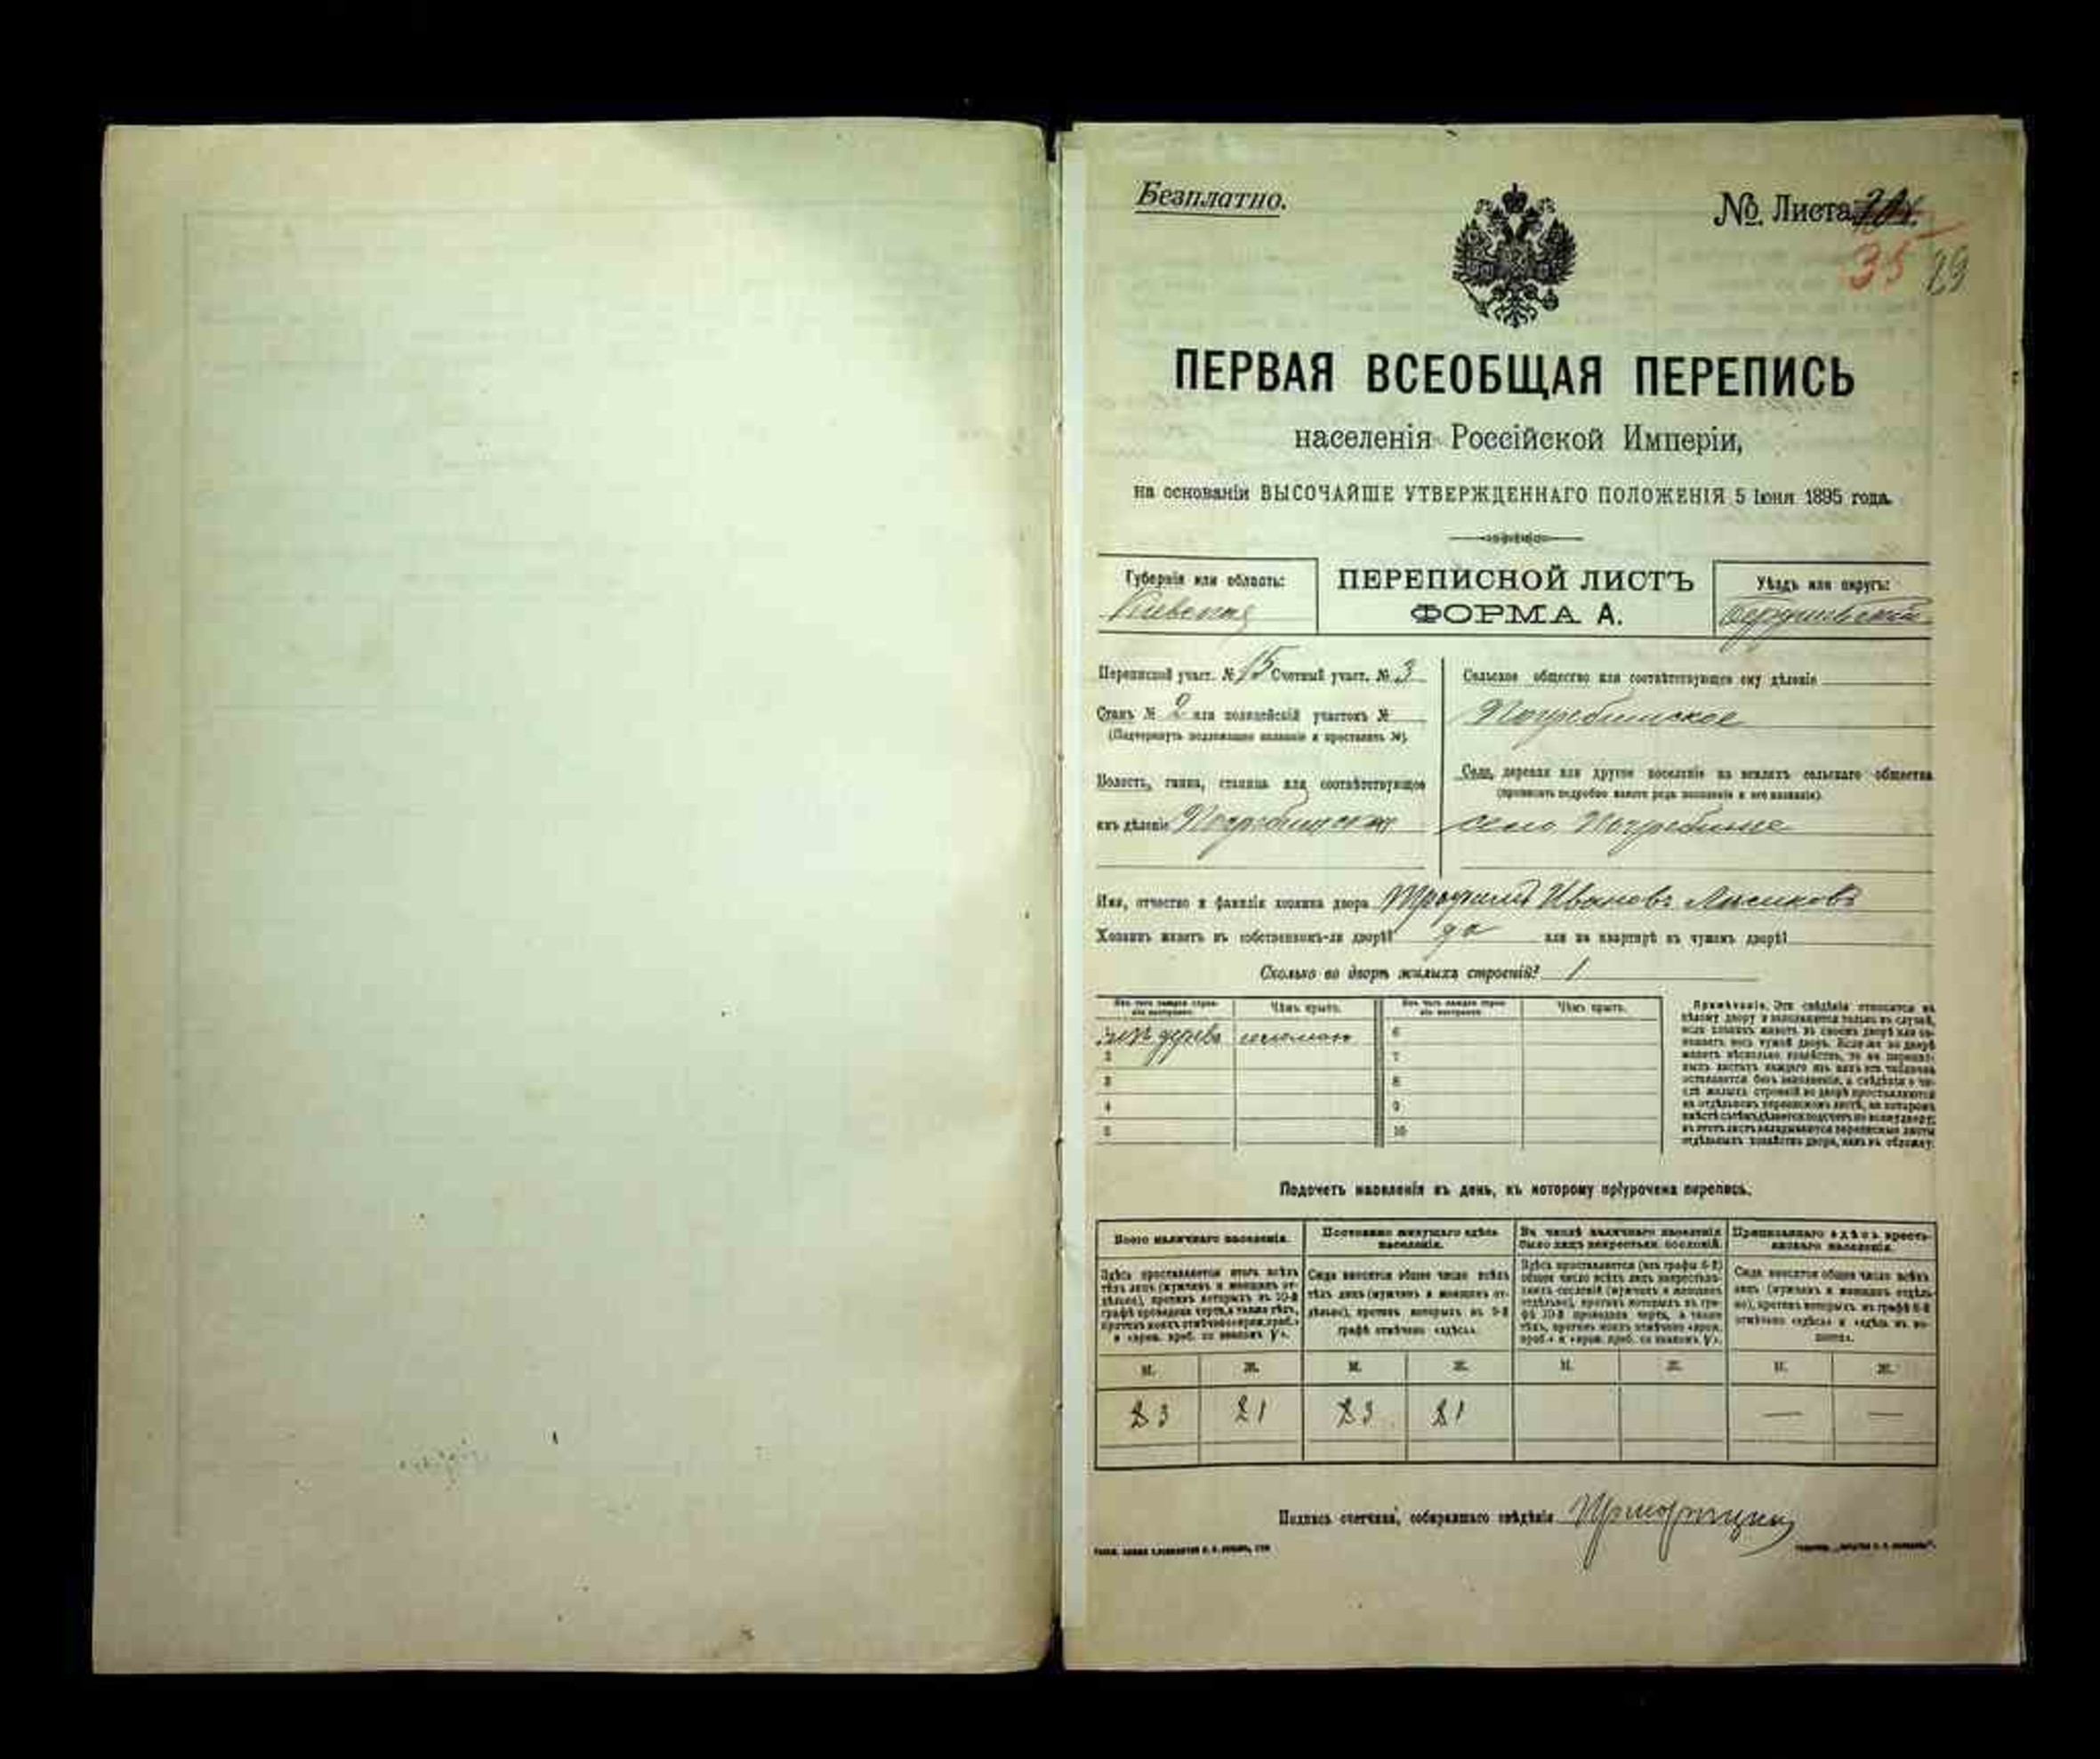 Безплатно.
№ Листа
35 29
ПЕРВАЯ ВСЕОБЩАЯ ПЕРЕПИСЬ
населенія Россійской Имперіи,
на основаніи ВЫСОЧАЙШЕ УТВЕРЖДЕННАГО ПОЛОЖЕНІЯ 5 Іюня 1895 года.
Губернія или область:
Кіевская
ПЕРЕПИСНОЙ ЛИСТЪ
ФОРМА А.
Уѣздъ или округъ:
Переписной участ. № 15 Счетный участ. № 3
Станъ № 2 или полицейскій участокъ №
(Подчеркнуть подлежащее названіе и проставить №).
Волость, гмина, станица или соотвѣтствующее
имъ дѣленіе
Сельское общество или соотвѣтствующее ему дѣленіе
Погребищское
Село, деревня или другое поселеніе на земляхъ сельскаго общества
(прописать подробно какого рода поселеніе и его названіе).
село Погребище
Имя, отчество и фамилія хозяина двора Трофимъ Ивановъ Лысиковъ
Хозяинъ живетъ въ собственномъ-ли дворѣ? да или на квартирѣ въ чужомъ дворѣ?
Сколько во дворѣ жилыхъ строеній? 1
Изъ чего каждое строеніе построено. Чѣмъ крыто. Изъ чего каждое строеніе построено. Чѣмъ крыто.
изъ дерева соломою 6
2 7
3 8
4 9
5 10
Примѣчаніе. Эти свѣдѣнія относятся къ
цѣлому двору и заполняются только въ случаѣ,
если хозяинъ живетъ въ своемъ дворѣ или за-
нимаетъ весь чужой дворъ. Если же во дворѣ
живетъ нѣсколько хозяйствъ, то на перепис-
ныхъ листахъ каждаго изъ нихъ эта табличка
оставляется безъ заполненія, а свѣдѣнія о чи-
слѣ жилыхъ строеній во дворѣ проставляются
на отдѣльномъ переписномъ листѣ, на которомъ
вмѣстѣ съ тѣмъ дѣлается подсчетъ по всему двору;
въ этотъ листъ вкладываются переписные листы
отдѣльныхъ хозяйствъ двора, какъ въ обложку.
Подсчетъ населенія въ день, къ которому пріурочена перепись.
Всего наличнаго населенія.
Постоянно живущаго здѣсь населенія.
Въ числѣ наличнаго населенія было лицъ некрестьян. сословій.
Приписаннаго здѣсь крестьянскаго населенія.
Здѣсь проставляется итогъ всѣхъ
тѣхъ лицъ (мужчинъ и женщинъ от-
дѣльно), противъ которыхъ въ 10-й
графѣ проведена черта, а также тѣхъ,
противъ коихъ отмѣчено «врем. преб.»
и «врем. преб. со знакомъ V».
Сюда вносится общее число всѣхъ
тѣхъ лицъ (мужчинъ и женщинъ от-
дѣльно), противъ которыхъ въ 9-й
графѣ отмѣчено «здѣсь».
Здѣсь проставляется (изъ графы 6-й)
общее число всѣхъ лицъ некрестьян-
скихъ сословій (мужчинъ и женщинъ
отдѣльно), противъ которыхъ въ гра-
фѣ 10-й проведена черта, а также
тѣхъ, противъ коихъ отмѣчено «врем.
преб.» и «врем. преб. со знакомъ V».
Сюда вносится общее число всѣхъ
лицъ (мужчинъ и женщинъ отдѣль-
но), противъ которыхъ въ графѣ 8-й
отмѣчено «здѣсь» и «здѣсь въ во-
лости».
М. Ж. М. Ж. М. Ж. М. Ж.
3 1 3 1 — —
Подпись счетчика, собиравшаго свѣдѣнія